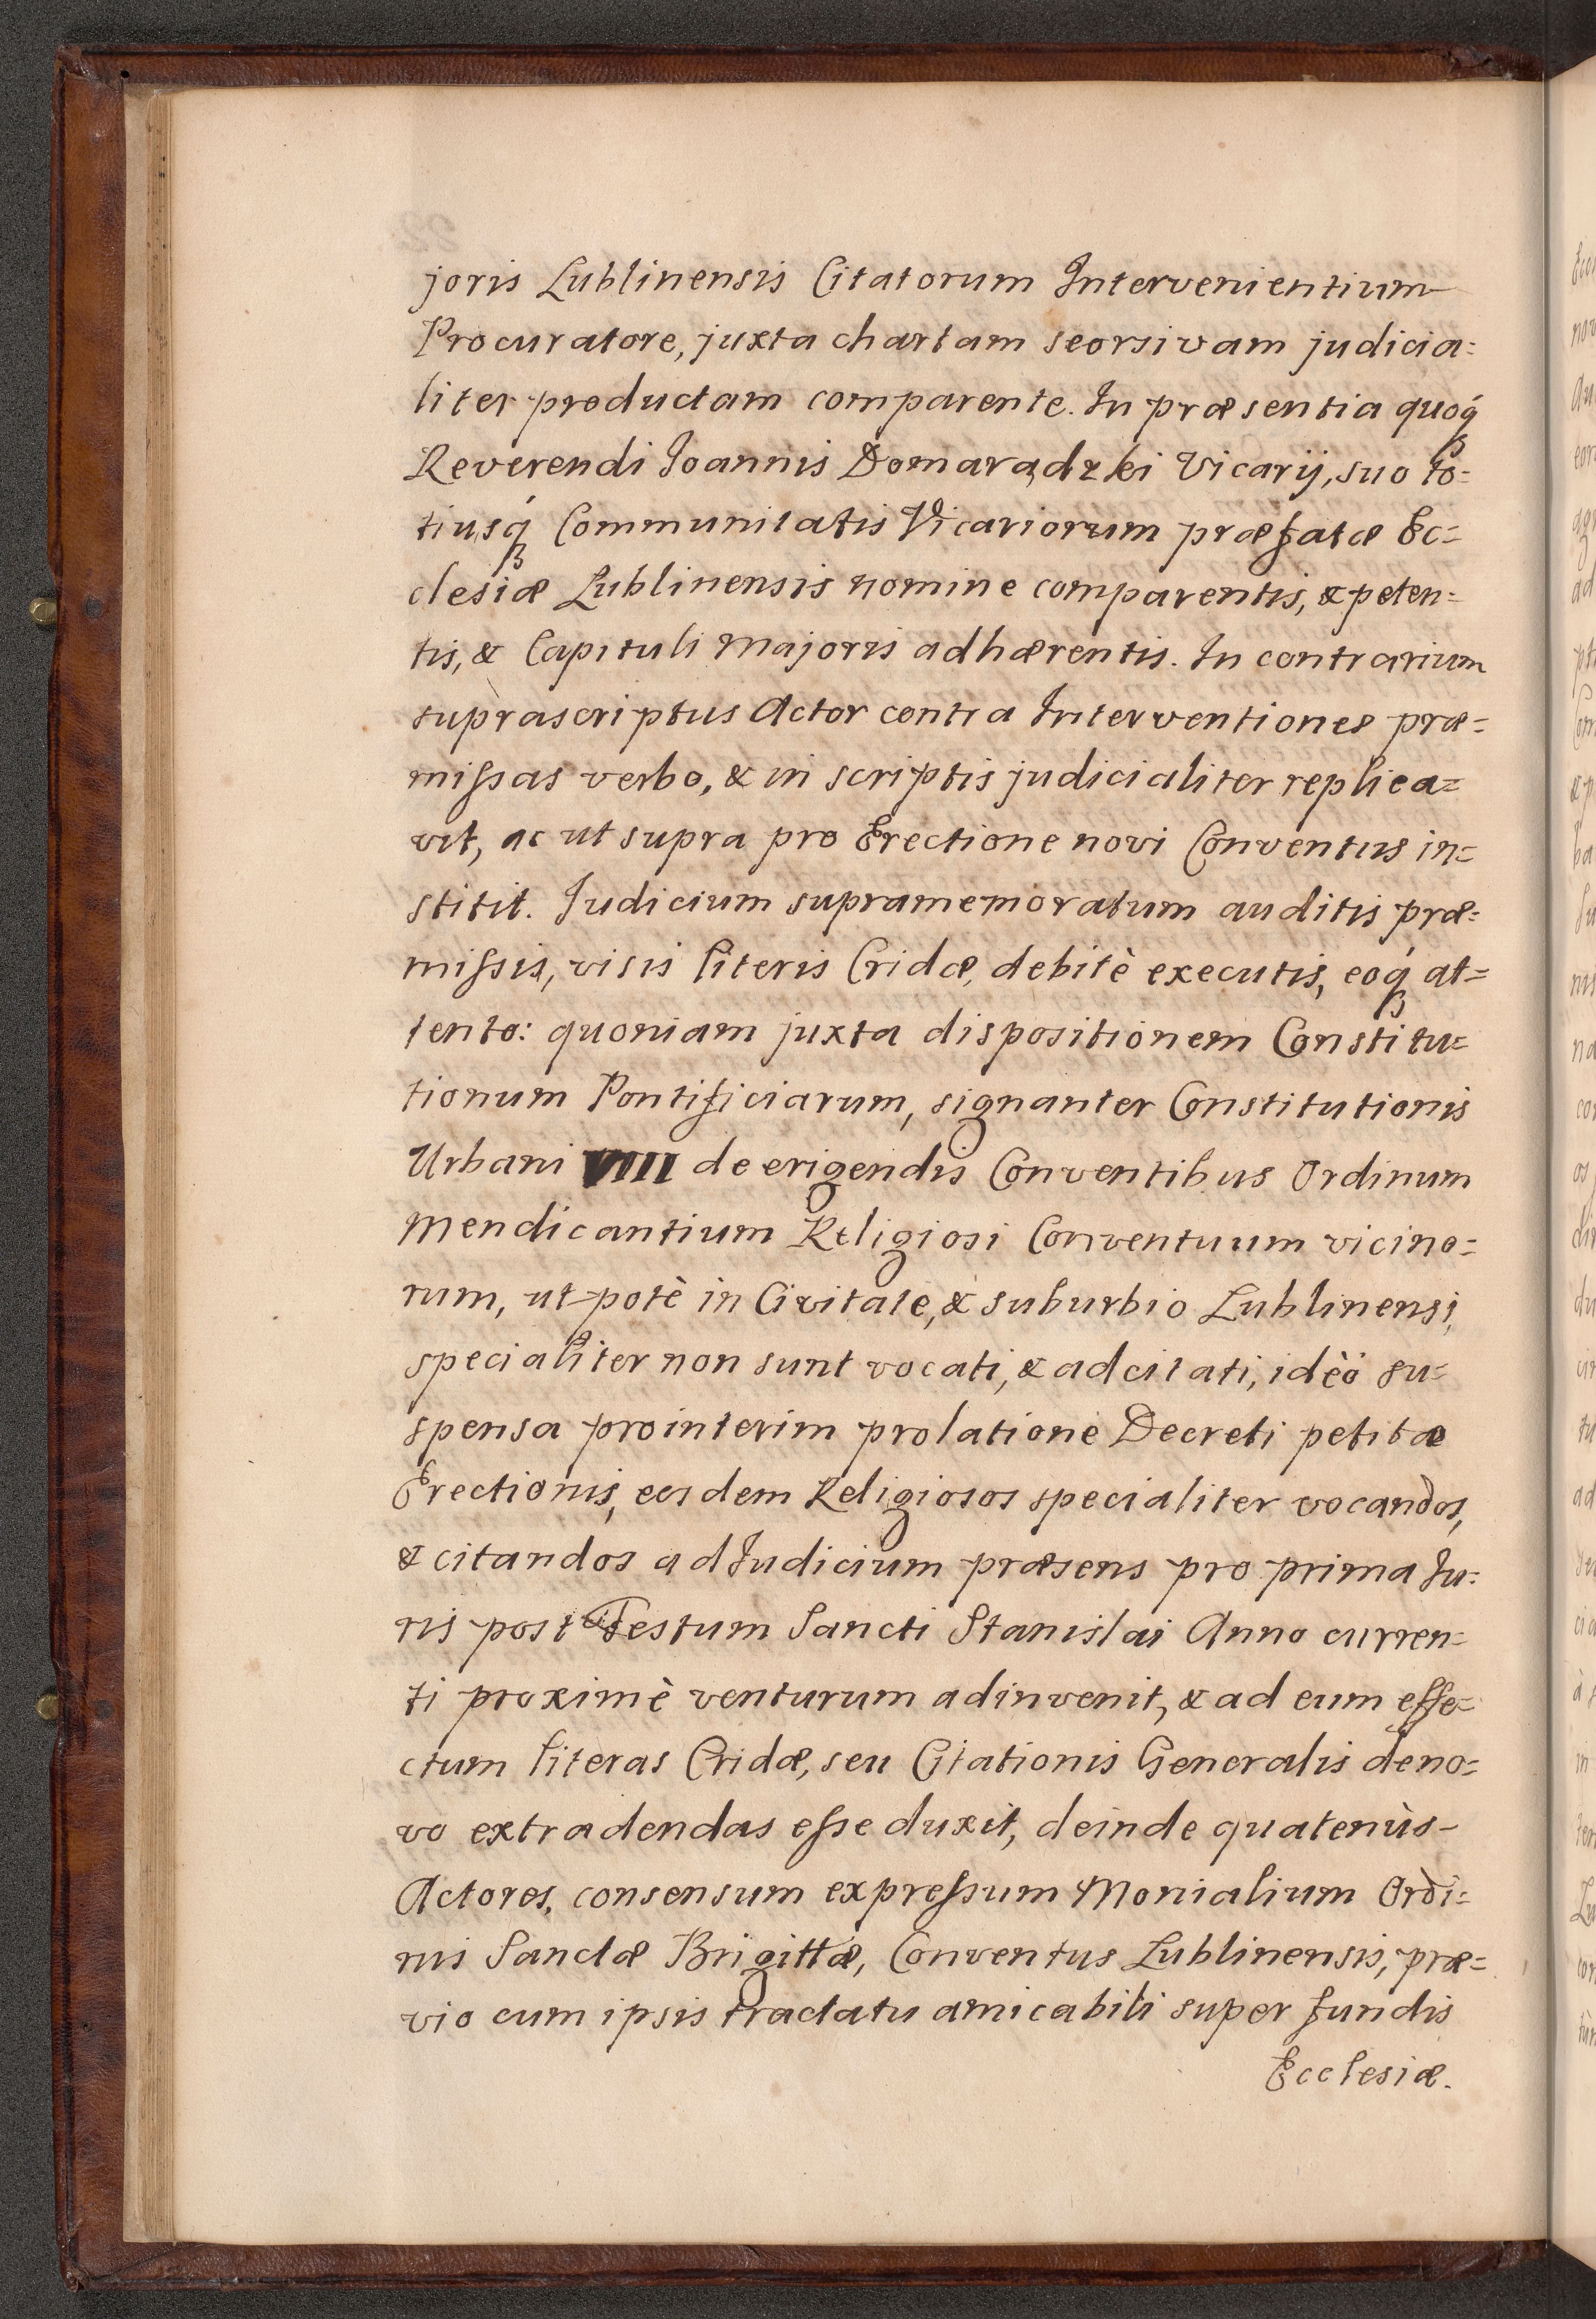 joris Lublinensis Citatorum Intervenientium
Procuratore, juxta chartam seorsivam judicia=
liter productam comparente. In præsentia quoq́
Reverendi Ioannis Domaradzki Vicarij, suo to=
tiusq́ Communitatis Vicariorum præfatæ Ec=
clesiæ Lublinensis nomine comparentis, & peten=
tis, & Capituli Majoris adhærentis. In contrarium
suprascriptus Actor contra Interventiones præ=
missas verbo, & in scriptis judicialiter replica=
vit, ac ut supra pro Erectione novi Conventus in=
stitit. Iudicium supramemoratum auditis præ=
missis, visis literis Cridæ, debitè executis, eoq́ at=
tento: quoniam juxta dispositionem Constitu=
tionum Pontificiarum, signanter Constitutionis
Urbani VIII de erigendis Conventibus Ordinum
Mendicantium Religiosi Conventuum vicino=
rum, ut potè in Civitate, & suburbio Lublinensi,
specialiter non sunt vocati, & adcitati, idèò su=
spensa prointerim prolatione Decreti petitæ
Erectionis, eosdem Religiosos specialiter vocandos,
& citandos ad Iudicium præsens pro prima Iu=
ris post Festum Sancti Stanislai Anno curren=
ti proximè venturum adinvenit, & ad eum effe=
ctum literas Cridæ, seu Citationis Generalis deno=
vo extradendas esse duxit, deinde quatenùs
Actores, consensum expressum Monialium Ordi=
nis Sanctæ Brigittæ, Conventus Lublinensis, præ=
vio cum ipsis tractatu amicabili super fundis
Ecclesiæ.